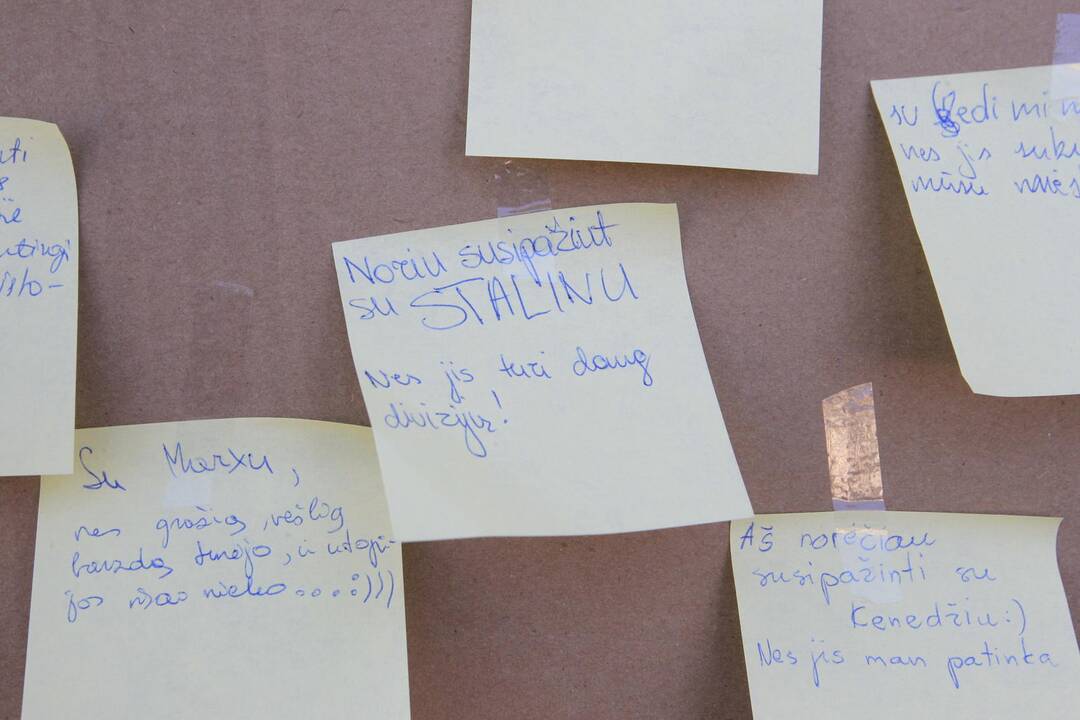 su Gedimi
nes jis suk
mūsu
Noriu susipažint
su STALINU
Nes jis turi daug
divizijų!
Su Marxu,
nes gražią, vešlią
barzdą turėjo, ir utopi-
jos visao nieko....:)))
Aš norėčiau
susipažinti su
Kenedžiu:)
Nes jis man patinka